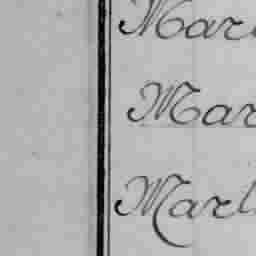 Marl
Mar
Marl